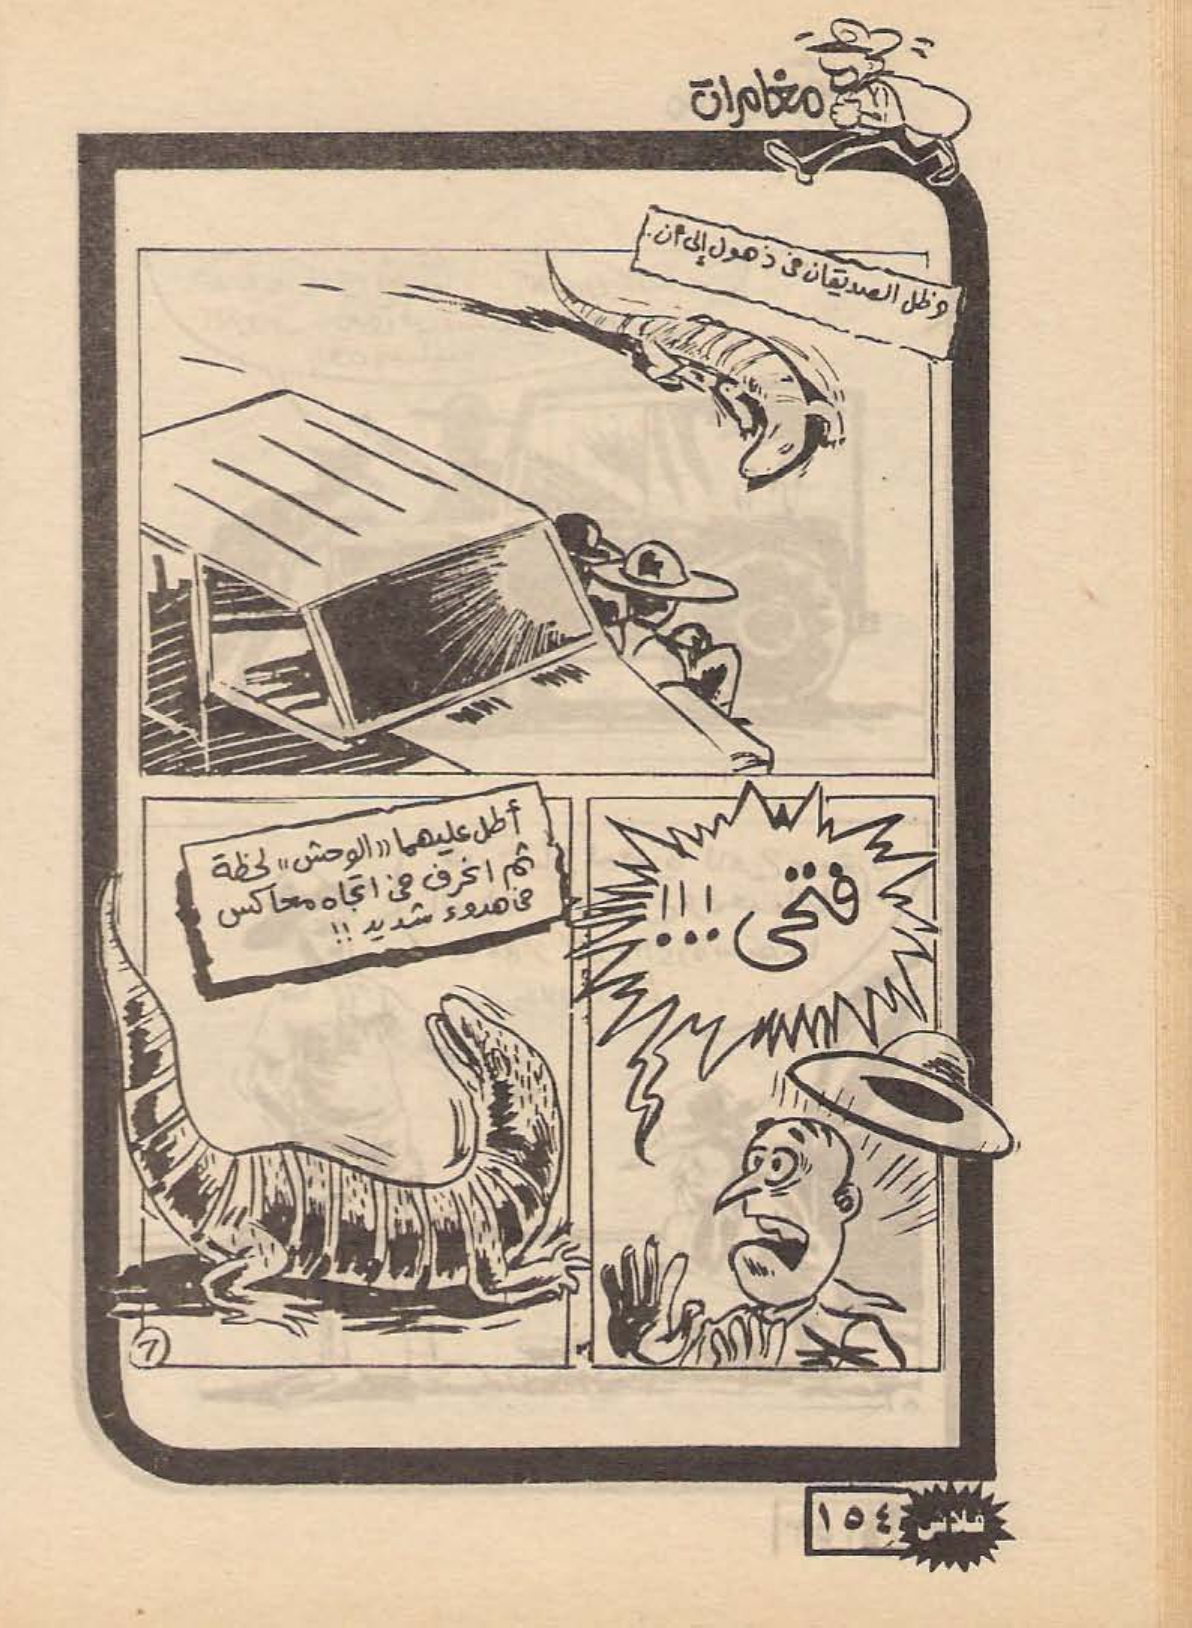 مغامرات
وظل الصديقان فى ذهول إلى أن..
فتحى !!!
أطل عليهما "الوحش" لحظة
ثم انحرف فى اتجاه معاكس
فى هدوء شديد !!
٦
فلاش
١٥٤